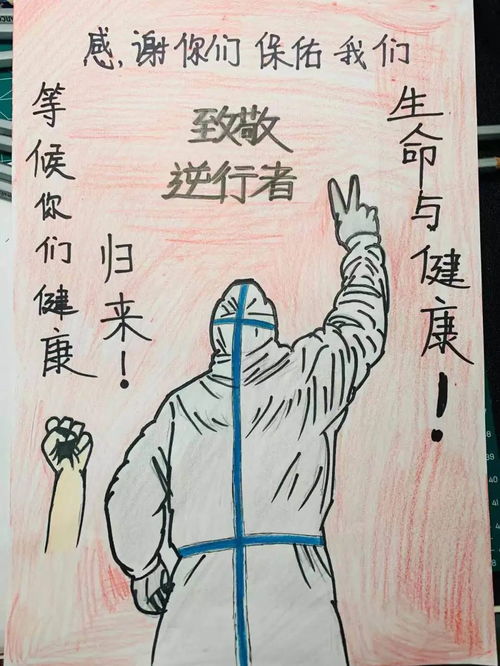 感,谢你们保佑我们
生命与健康!
致敬
逆行者
等候你们健康
归来!